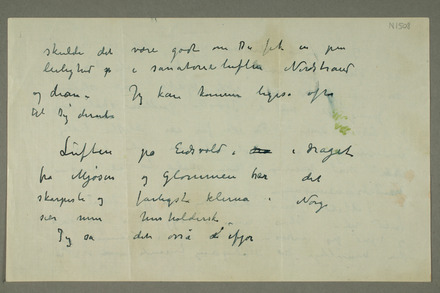 N1508
skulde det være godt om Du fik en pen
leilighed på i sanatorieluften Nordstrand
og dran – Jeg kan komme ligeså ofte
til Dig
Luften på Eidsvold i i draget
fra Mjøsen og Glommen har det
skarpeste og farligste klima i Norge
sier min
Jeg sa det også ifjor